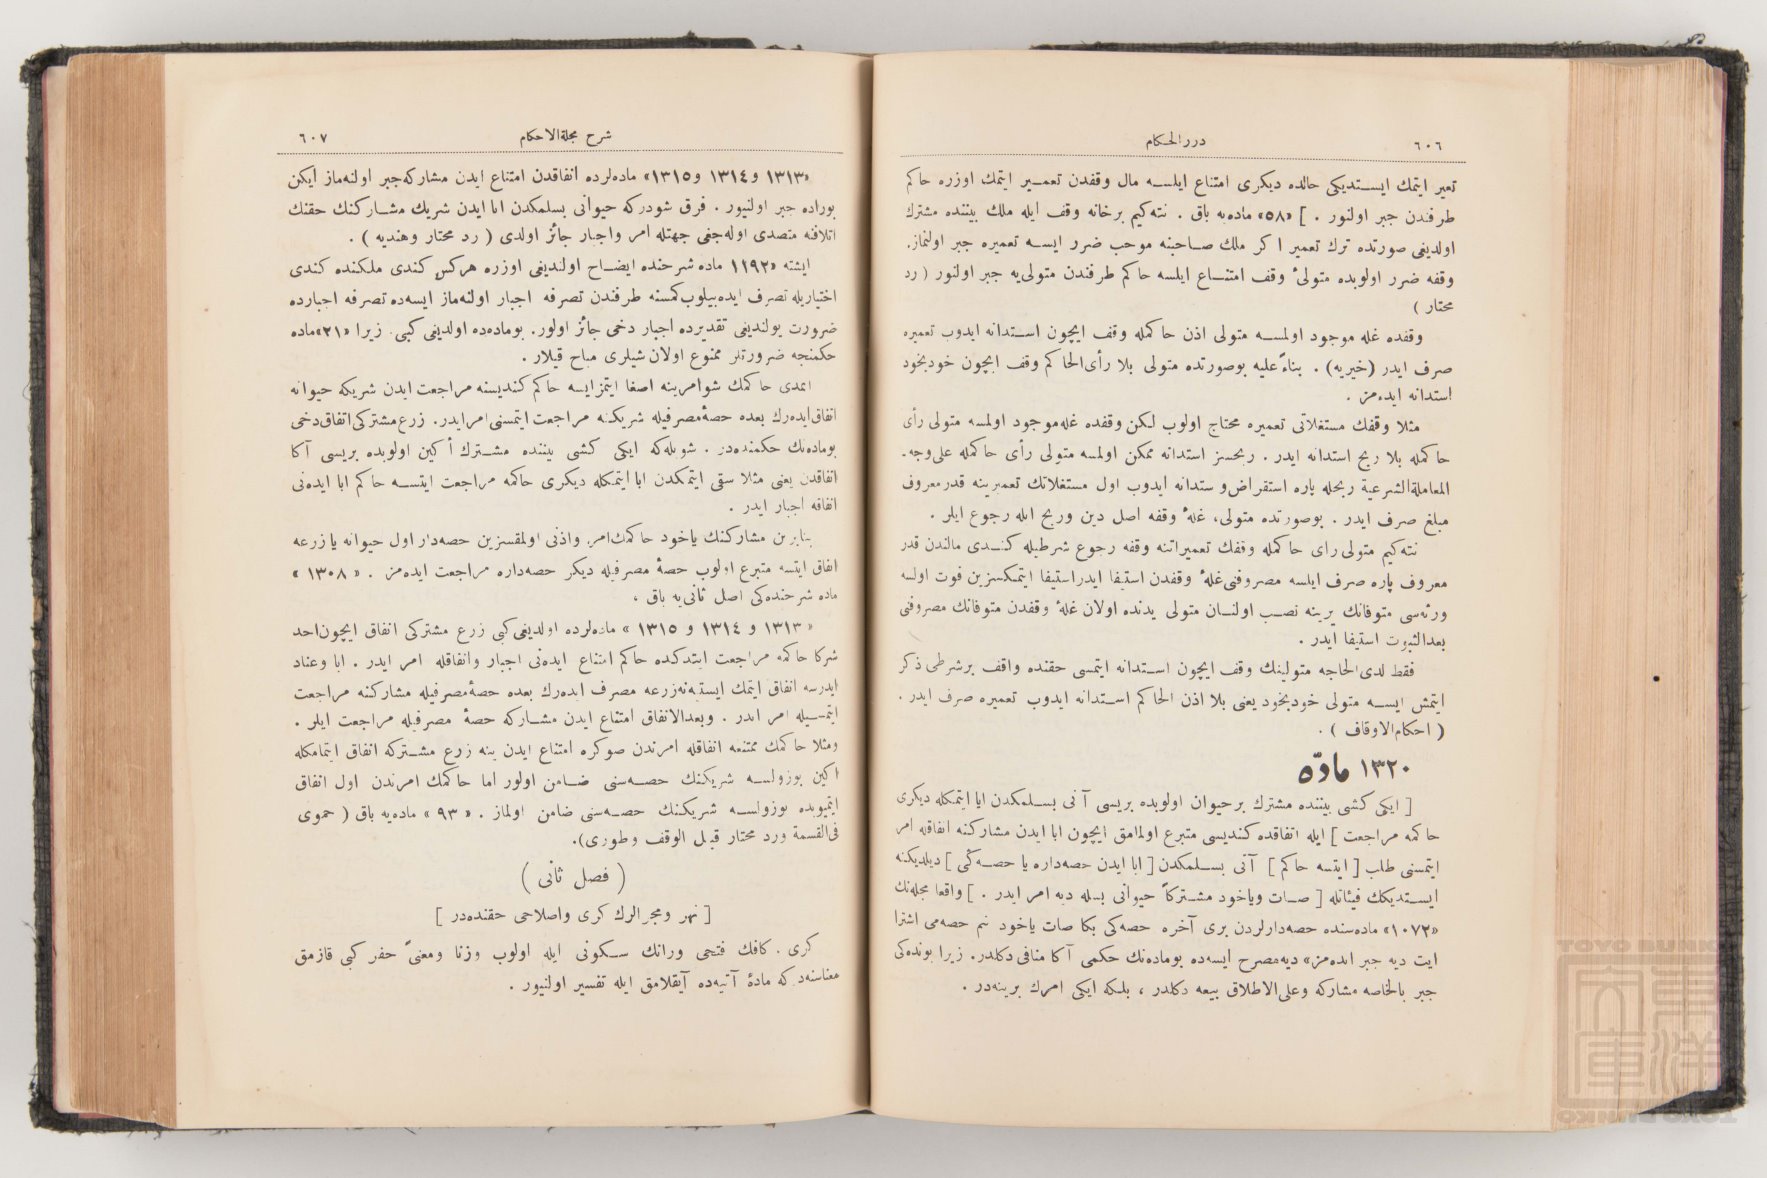 ٦٠٦
دررالحكام
تعير ايتمك ايستديكى حالده ديكرى امتناع ايلسه مال وقفدن تعمير ايتمك اوزره حاكم
طرفندن جبر اولنور . ] «٥٨» ماده‌يه باق . نته‌كيم برخانه وقف ايله ملك بيننده مشترك
اولديغى صورتده ترك تعمير ا كر ملك صاحبنه موجب ضرر ايسه تعميره جبر اولنماز.
وقفه ضرر اولوبده متولىٔ وقف امتناع ايلسه حاكم طرفندن متولى‌يه جبر اولنور ( رد
محتار )
وقفده غله موجود اولمسه متولى اذن حاكمله وقف ايچون استدانه ايدوب تعميره
صرف ايدر (خيريه) . بناءً عليه بوصورتده متولى بلا رأى‌الحاكم وقف ايچون خودبخود
استدانه ايده‌مز .
مثلا وقفك مستغلاتى تعميره محتاج اولوب لكن وقفده غله‌موجود اولمسه متولى رأى
حاكمله بلا ربح استدانه ايدر . ربحسز استدانه ممكن اولمسه متولى رأى حاكمله على‌وجه‌ـ
المعاملةالشرعية ربحله پاره استقراض و ستدانه ايدوب اول مستغلاتك تعميرينه قدرمعروف
مبلغ صرف ايدر . بوصورتده متولى، غلهٔ وقفه اصل دين وربح ايله رجوع ايلر .
نته‌كيم متولى راى حاكمله وقفك تعميراتنه وقفه رجوع شرطيله كندى مالندن قدر
معروف پاره صرف ايلسه مصروفنى‌غلهٔ وقفدن استيفا ايدراستيفا ايتمكسزين فوت اولسه
ورثه‌سى متوفانك يرينه نصب اولنان متولى يدنده اولان غلهٔ وقفدن متوفانك مصروفنى
بعدالثبوت استيفا ايدر .
فقط لدى‌الحاجه متولينك وقف ايچون استدانه ايتمسى حقنده واقف برشرطى ذكر
ايتمش ايسه متولى خودبخود يعنى بلا اذن الحاكم استدانه ايدوب تعميره صرف ايدر .
( احكام‌الاوقاف ) .
١٣٢٠ مادّه
[ ايكى كشى بيننده مشترك برحيوان اولوبده بريسى آنى بسلمكدن ابا ايتمكله ديكرى
حاكمه مراجعت ] ايله انفاقده كنديسى متبرع اولمامق ايچون ابا ايدن مشاركنه انفاقله امر
ايتمسنى طلب [ ايتسه حاكم ] آنى بسلمكدن [ ابا ايدن حصه‌داره يا حصه‌كى ] ديلديكنه
ايستديكك فيئاتله [ صات وياخود مشتركاً حيوانى بسله ديه امر ايدر . ] واقعا مجله‌نك
«١٠٧٢» ماده‌سنده حصه‌دارلردن برى آخره حصه‌كى بكا صات ياخود بنم حصه‌مى اشترا
ايت ديه جبر ايده‌مز» ديه‌مصرح ايسه‌ده بوماده‌نك حكمى آكا منافى دكلدر. زيرا بونده‌كى
جبر بالخاصه مشاركه وعلى‌الاطلاق بيعه دكلدر ، بلكه ايكى امرك برينه‌در .
شرح مجلةالاحكام
٦٠٧
«١٣١٣ و ١٣١٤ و ١٣١٥» ماده‌لرده انفاقدن امتناع ايدن مشاركه‌جبر اولنه‌ماز ايكن
بوراده جبر اولنيور . فرق شودركه حيوانى بسلمكدن ابا ايدن شريك مشاركنك حقنك
اتلافنه متصدى اوله‌جغى جهتله امر واجبار جائز اولدى ( رد محتار وهنديه ) .
ايشته «١١٩٢ ماده شرحنده ايضاح اولنديغى اوزره هركس كندى ملكنده كندى
اختياريله تصرف ايده‌بيلوب‌كمسنه طرفندن تصرفه اجبار اولنه‌ماز ايسه‌ده تصرفه اجبارده
ضرورت بولنديغى تقديرده اجبار دخى جائز اولور. بوماده‌ده اولديغى كبى. زيرا «٢١»ماده
حكمنجه ضرورتلر ممنوع اولان شيلرى مباح قيلار .
ايمدى حاكمك شوامرينه اصغا ايتمزايسه حاكم كنديسنه مراجعت ايدن شريكه حيوانه
انفاق‌ايده‌رك بعده حصهٔ‌مصرفيله شريكنه مراجعت ايتمسنى امرايدر. زرع‌مشتركى‌انفاق‌دخى
بوماده‌نك حكمنده‌در . شويله‌كه ايكى كشى بيننده مشترك أكين اولوبده بريسى آكا
انفاقدن يعنى مثلا سقى ايتمكدن ابا ايتمكله ديكرى حاكمه مراجعت ايتسه حاكم ابا ايده‌نى
انفاقه اجبار ايدر .
بنابرين مشاركنك ياخود حاكمك‌امر واذنى اولمقسزين حصه‌دار اول حيوانه يا زرعه
انفاق ايتسه متبرع اولوب حصهٔ مصرفيله ديكر حصه‌داره مراجعت ايده‌مز . « ١٣٠٨ »
ماده شرحنده‌كى اصل ثانى‌يه باق .
« ١٣١٣ و ١٣١٤ و ١٣١٥ » ماده‌لرده اولديغى‌كبى زرع مشتركى انفاق ايچون‌احد
شركا حاكمه مراجعت ايتدكده حاكم امتناع ايده‌نى اجبار وانفاقله امر ايدر . ابا وعناد
ايدرسه انفاق ايتمك ايستيه‌نه‌زرعه مصرف ايده‌رك بعده حصهٔ‌مصرفيله مشاركنه مراجعت
ايتمسيله امر ايدر . وبعدالانفاق امتناع ايدن مشاركه حصهٔ مصرفيله مراجعت ايلر .
ومثلا حاكمك ممتنعه انفاقله امرندن صوكره امتناع ايدن ينه زرع مشتركه انفاق ايتمامكله
اكين بوزولسه شريكنك حصه‌سنى ضامن اولور اما حاكمك امرندن اول انفاق
ايتميوبده بوزولسه شريكنك حصه‌سنى ضامن اولماز . « ٩٣ » ماده‌يه باق ( حموى
فى‌القسمة ورد محتار قبل الوقف وطورى).
( فصل ثانى )
[ نهر ومجرالرك كرى واصلاحى حقنده‌در ]
كرى . كافك فتحى ورانك سكونى ايله اولوب وزنا ومعنىً حفر كبى قازمق
معناسنه‌در كه مادهٔ آتيه‌ده آيقلامق ايله تفسير اولنيور .
TOYO BUNKO